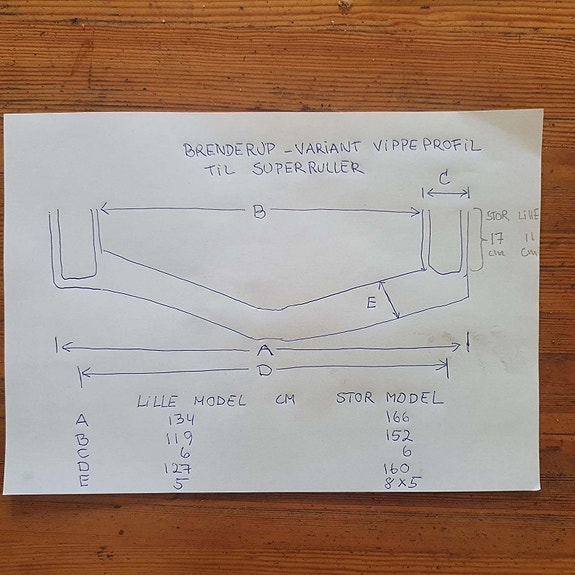 BRENDERUP - VARIANT VIPPEPROFIL
TIL SUPERRULLER
C
B
STOR LILLE
17 11
cm cm
E
A
D
LILLE MODEL CM STOR MODEL
A 134 166
B 119 152
C 6 6
D 127 160
E 5 8x5